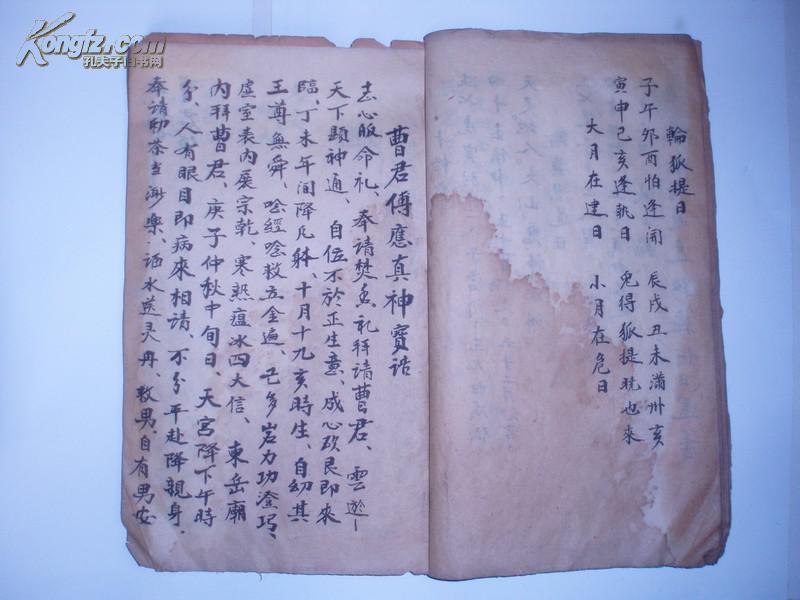 Kongfz.com
孔夫子旧书网
輪狐提日
子午卯酉怕逢開 辰戌丑未滿卅亥
寅申已亥逢執日 鬼得狐提晄也來
大月在建日 小月在危日
曹君傅應真神寶诰
志心皈命礼、奉請焚香礼拜請曹君、雲遊
天下顯神通、自伍不於正生意、成心改艮即來
臨、丁未年间降凡躰、十月十九亥時生、自幼其
王尊無舜、唸經唸救五金遍、已多岩力功澄巧、
虚室衷内展宗乾、寒熱瘟冰四大信、東岳廟
内拜曹君、庚子仲秋中旬日、天宮降下午時
分、人有眼目即病來相請、不分平赴降親身、
奉請助茶並洲樂、洒水送灵丹、救男自有男安